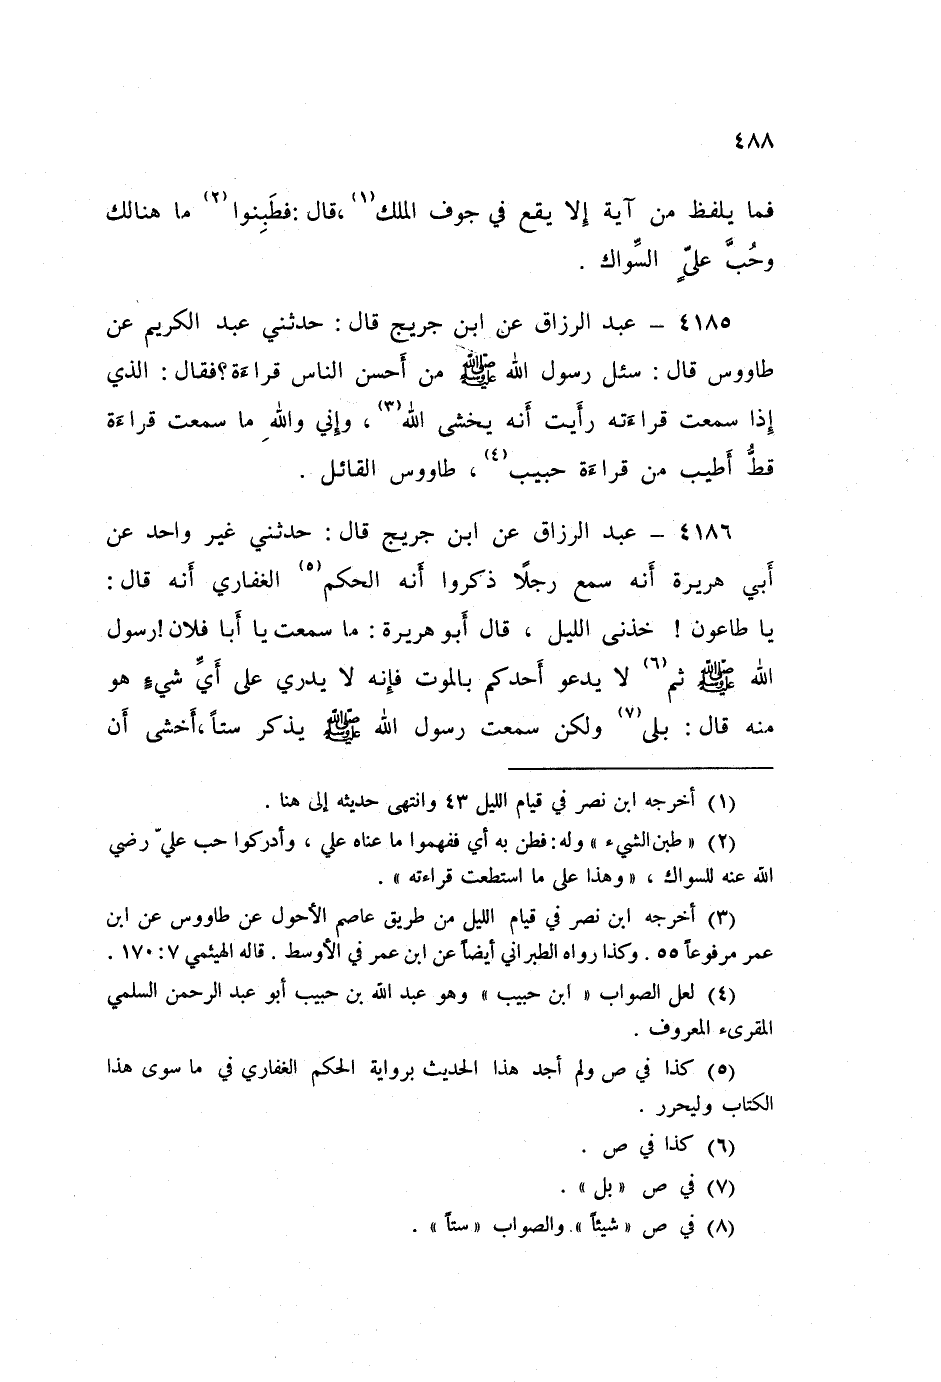 ٤٨٨
فما يلفظ من آية إلا يقع في جوف الملك(١)،قال:فطَبِنوا(٢) ما هنالك
وحُبَّ عليٍّ السِّواك .
٤١٨٥ – عبد الرزاق عن ابن جريج قال : حدثني عبد الكريم عن
طاووس قال : سئل رسول الله ﷺ من أَحسن الناس قراءَة؟فقال : الذي
إِذا سمعت قراءَته رأَيت أَنه يخشى الله(٣) ، وإِني واللهِ ما سمعت قراءَة
قطُّ أَطيب من قراءَة حبيب(٤) ، طاووس القائل .
٤١٨٦ – عبد الرزاق عن ابن جريج قال : حدثني غير واحد عن
أَبي هريرة أَنه سمع رجلًا ذكروا أَنه الحكم(٥) الغفاري أَنه قال :
يا طاعون ! خذنى الليل ، قال أَبو هريرة : ما سمعت يا أَبا فلان !رسول
الله ﷺ ثم(٦) لا يدعو أَحدكم بالموت فإِنه لا يدري على أَيِّ شيءٍ هو
منه قال : بلى(٧) ولكن سمعت رسول الله ﷺ يذكر ستاً،أَخشى أَن
(١) أخرجه ابن نصر في قيام الليل ٤٣ وانتهى حديثه إلى هنا .
(٢) « طبن الشيء » وله:فطن به أي ففهموا ما عناه علي ، وأدركوا حب عليّ رضي
الله عنه للسواك ، « وهذا على ما استطعت قراءته » .
(٣) أخرجه ابن نصر في قيام الليل من طريق عاصم الأحول عن طاووس عن ابن
عمر مرفوعاً ٥٥ . وكذا رواه الطبراني أيضاً عن ابن عمر في الأوسط . قاله الهيثمي ٧: ١٧٠ .
(٤) لعل الصواب « ابن حبيب » وهو عبد الله بن حبيب أبو عبد الرحمن السلمي
المقرىء المعروف .
(٥) كذا في ص ولم أجد هذا الحديث برواية الحكم الغفاري في ما سوى هذا
الكتاب وليحرر .
(٦) كذا في ص .
(٧) في ص « بل » .
(٨) في ص « شيئاً ». والصواب « ستاً » .